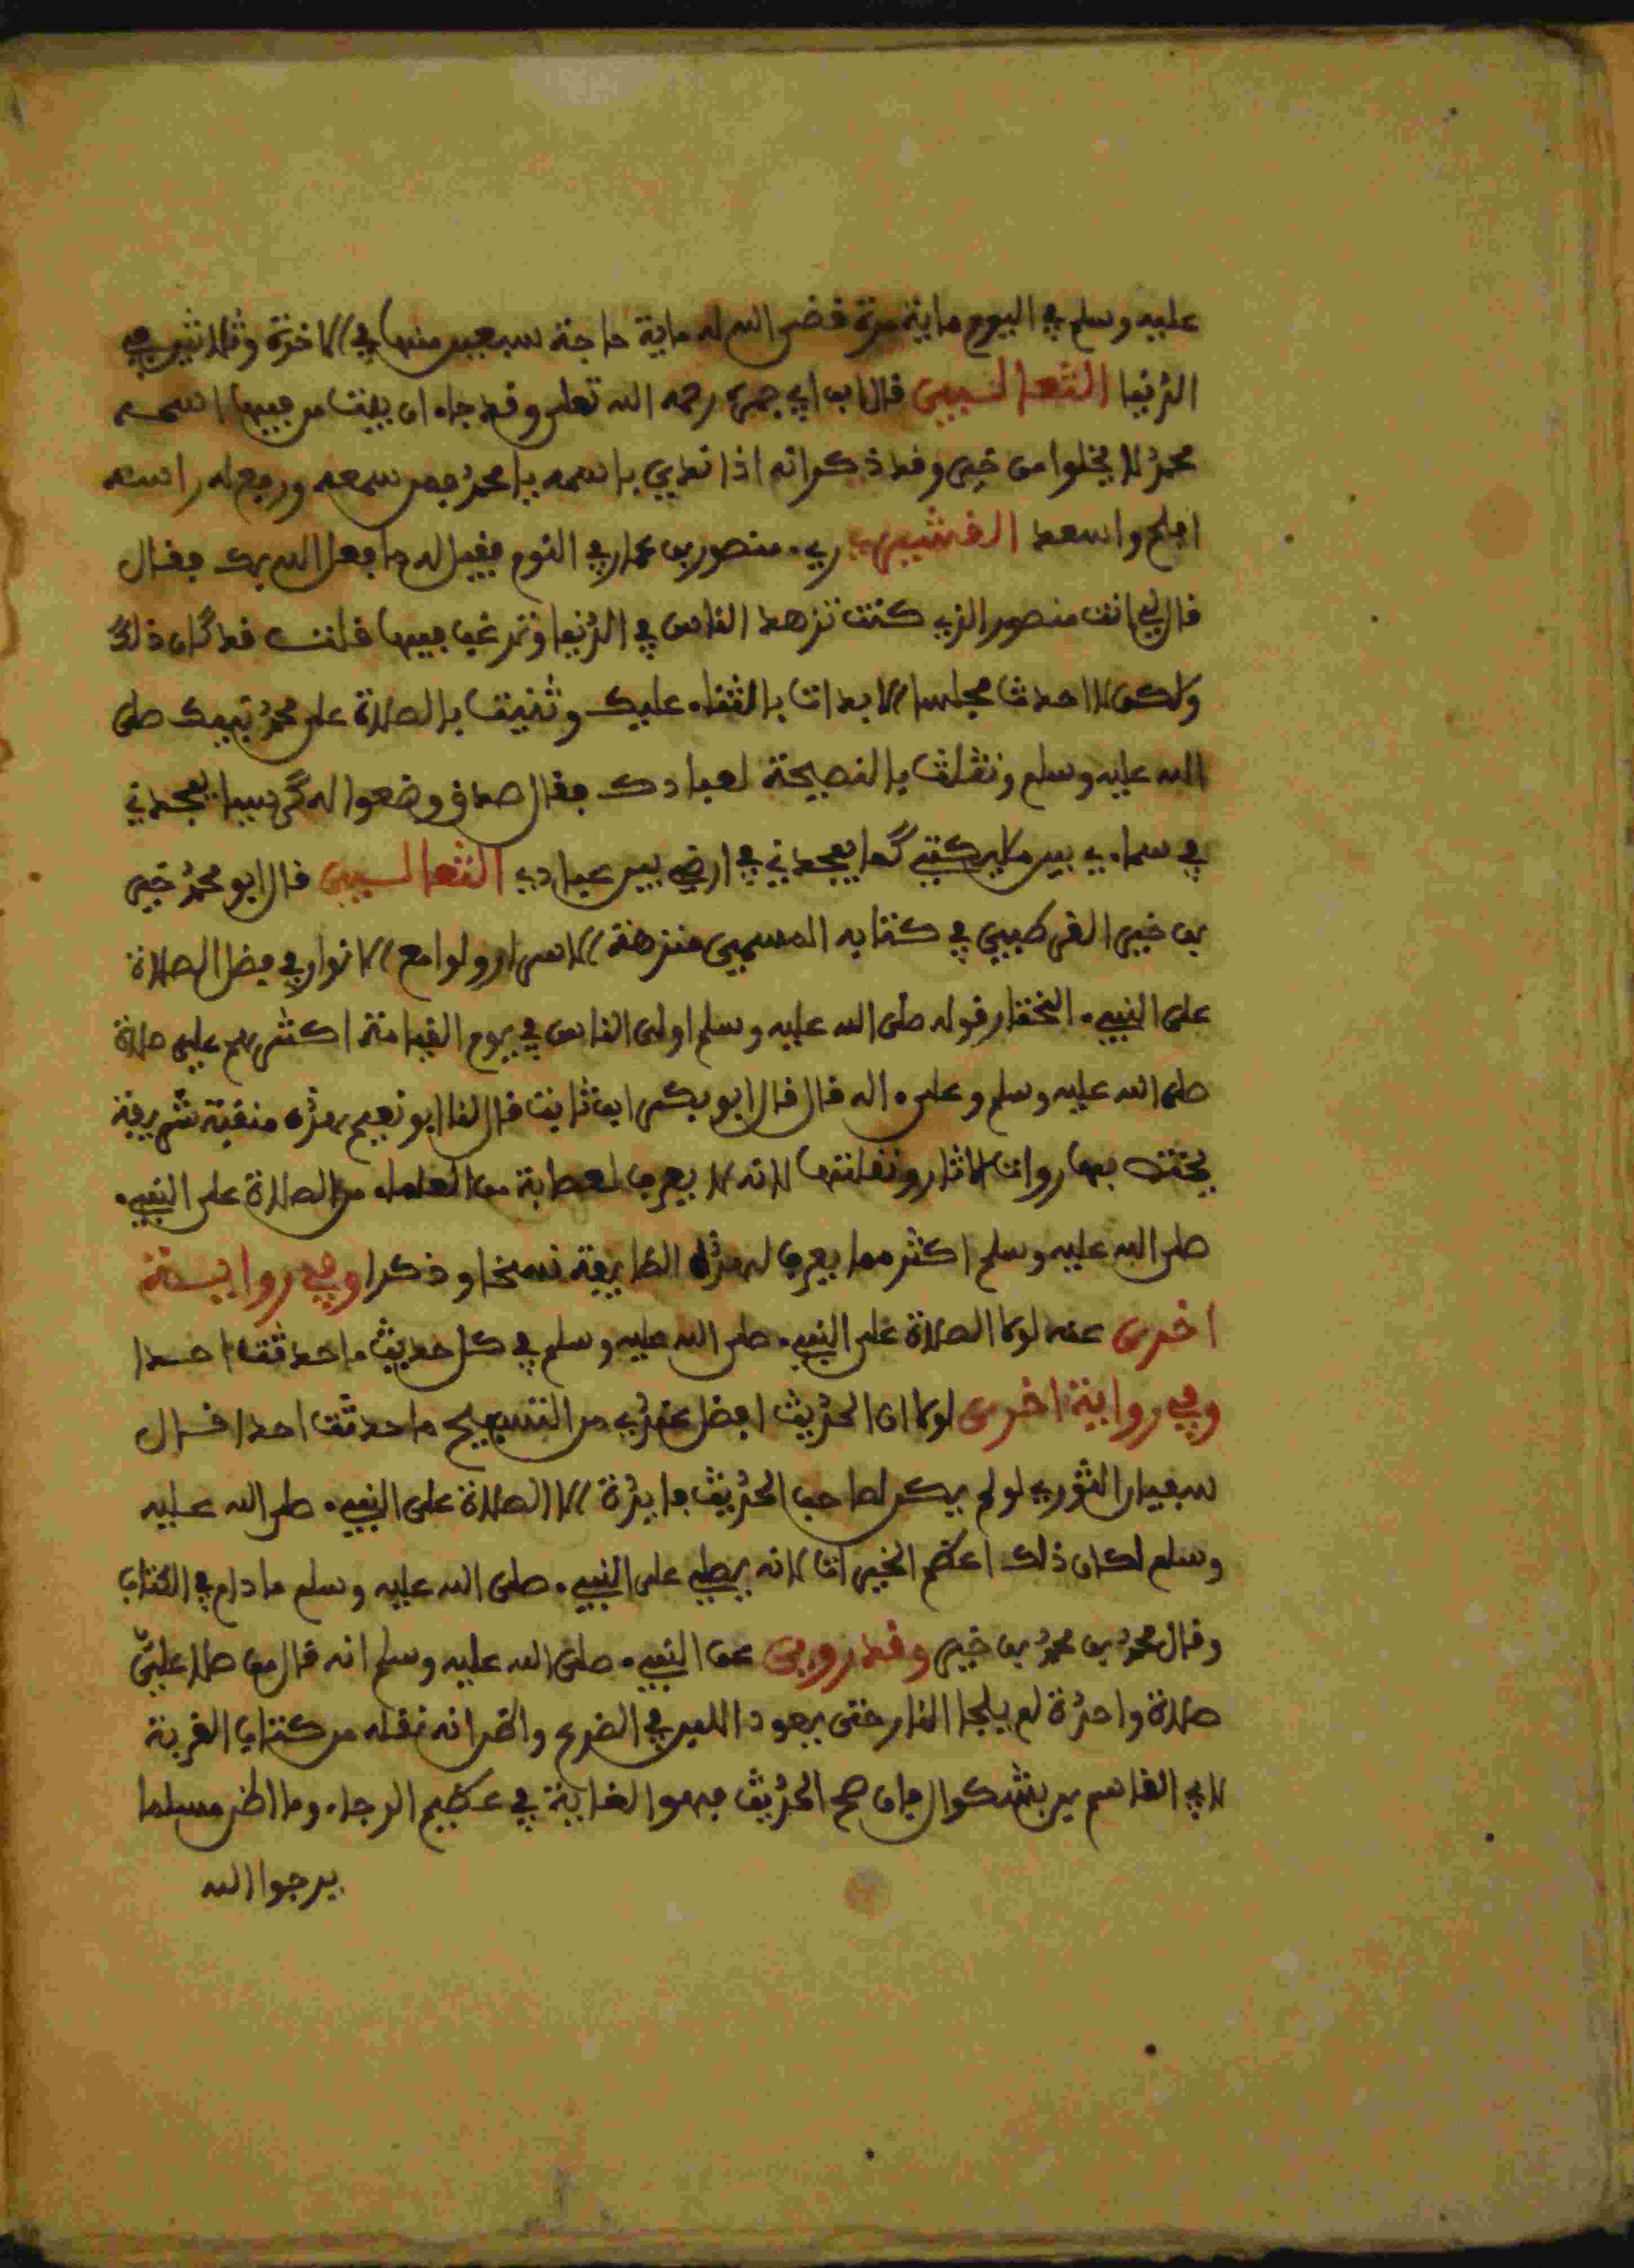 عليه وسلم في اليوم ماية مرة قضى الله له ماية حاجة سبعين منها في الاخرة وثلاثين في
الدنيا الثعالبي قال ابن ابي جمرة رحمه الله تعلى وقد جاء ان بيتا من فيها اسمه
محمد لا يخلوا من خير وقد ذكر انه اذا نودي باسمه يا محمد سمعه ورفع له راسه
افلح واسعد القشيري ري منصور بن عمار في النوم فقيل له ما فعل الله بك فقال
قال لي انت منصور الذي كنت تزهد الناس في الدنيا وترغب فيها قلت قد كان ذلك
ولكن لا اخذت مجلسا الا بدات بالثناء عليك وثنيت بالصلاة على محمد نبيك صلى
الله عليه وسلم وثلثت بالنصيحة لعبادك فقال صدق وضعوا له كرسيا يمجدني
في سماءي بين ملايكتي كما يمجدني في ارضي بين عبادي الثعالبي قال ابو محمد خير
بن خير القرطبي في كتابه المسمى منزهة الاسرار ولوامع الانوار في فضل الصلاة
على النبيء المختار قوله صلى الله عليه وسلم اولى الناس في يوم القيامة اكثرهم علي صلاة
صلى الله عليه وسلم وعلى ءاله قال قال ابو بكر ابن ثابت قال لنا ابو نعيم هذه منقبة شريفة
يختص بها روات الاثار ونقلتها لانه لا يعرف لعصابة من العلماء من الصلاة على النبيء
صلى الله عليه وسلم اكثر مما يعرف لهذه الطايفة نسخا وذكرا وفي رواية
اخرى عنه لولا الصلاة على النبيء صلى الله عليه وسلم في كل حديث ما حدثت احدا
وفي رواية اخرى لولا ان الحديث افضل عندي من التسبيح ما حدثت احدا قال
سفيان الثوري لو لم يكن لصاحب الحديث فايدة الا الصلاة على النبيء صلى الله عليه
وسلم لكان ذلك اعظم الخيرات لانه يصلي على النبيء صلى الله عليه وسلم ما دام في الكتاب
وقال محمد بن محمد بن خير وقد روي عن النبيء صلى الله عليه وسلم انه قال من صلا علي
صلاة واحدة لم يلجا النار حتى يعود اللبن في الضرع واظن انه نقله من كتاب القربة
لابي القاسم بن بشكوال فان صح الحديث فهو الغاية في عظيم الرجاء وما اظن مسلما
يرجوا الله